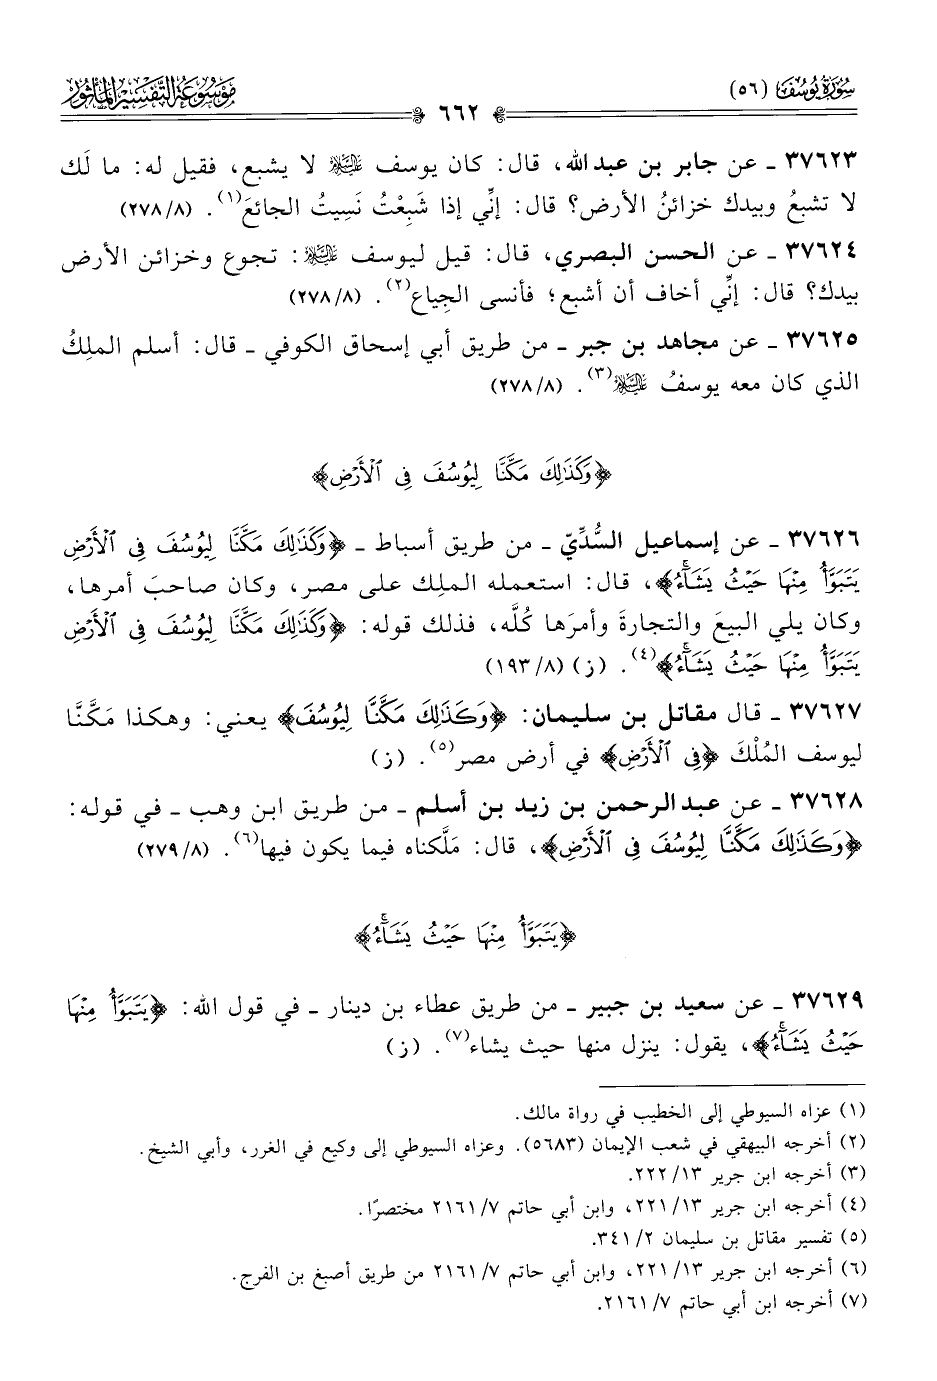 سُورَةُ يُوسُف (٥٦)
٦٦٢
مَوْسُوعَةُ التَّفْسِيرِ المَأْثُورِ
٣٧٦٢٣ ـ عن جابر بن عبد الله، قال: كان يوسف عليه السلام لا يشبع، فقيل له: ما لَك
لا تشبعُ وبيدك خزائنُ الأرض؟ قال: إنِّي إذا شَبِعْتُ نَسِيتُ الجائعَ(١). (٢٧٨/٨)
٣٧٦٢٤ ـ عن الحسن البصري، قال: قيل ليوسف عليه السلام: تجوع وخزائن الأرض
بيدك؟ قال: إنِّي أخاف أن أشبع؛ فأنسى الجِياع(٢). (٢٧٨/٨)
٣٧٦٢٥ ـ عن مجاهد بن جبر ـ من طريق أبي إسحاق الكوفي ـ قال: أسلم الملِكُ
الذي كان معه يوسفُ عليه السلام(٣). (٢٧٨/٨)
﴿وَكَذَٰلِكَ مَكَّنَّا لِيُوسُفَ فِى ٱلْأَرْضِ﴾
٣٧٦٢٦ ـ عن إسماعيل السُّدِّيّ ـ من طريق أسباط ـ ﴿وَكَذَٰلِكَ مَكَّنَّا لِيُوسُفَ فِى ٱلْأَرْضِ
يَتَبَوَّأُ مِنْهَا حَيْثُ يَشَآءُ﴾، قال: استعمله الملِك على مصر، وكان صاحبَ أمرها،
وكان يلي البيعَ والتجارةَ وأمرَها كُلَّه، فذلك قوله: ﴿وَكَذَٰلِكَ مَكَّنَّا لِيُوسُفَ فِى ٱلْأَرْضِ
يَتَبَوَّأُ مِنْهَا حَيْثُ يَشَآءُ﴾(٤). (ز) (١٩٣/٨)
٣٧٦٢٧ ـ قال مقاتل بن سليمان: ﴿وَكَذَٰلِكَ مَكَّنَّا لِيُوسُفَ﴾ يعني: وهكذا مَكَّنَّا
ليوسف المُلْكَ ﴿فِى ٱلْأَرْضِ﴾ في أرض مصر(٥). (ز)
٣٧٦٢٨ ـ عن عبد الرحمن بن زيد بن أسلم ـ من طريق ابن وهب ـ في قوله:
﴿وَكَذَٰلِكَ مَكَّنَّا لِيُوسُفَ فِى ٱلْأَرْضِ﴾، قال: مَلَّكناه فيما يكون فيها(٦). (٢٧٩/٨)
﴿يَتَبَوَّأُ مِنْهَا حَيْثُ يَشَآءُ﴾
٣٧٦٢٩ ـ عن سعيد بن جبير ـ من طريق عطاء بن دينار ـ في قول الله: ﴿يَتَبَوَّأُ مِنْهَا
حَيْثُ يَشَآءُ﴾، يقول: ينزل منها حيث يشاء(٧). (ز)
(١) عزاه السيوطي إلى الخطيب في رواة مالك.
(٢) أخرجه البيهقي في شعب الإيمان (٥٦٨٣). وعزاه السيوطي إلى وكيع في الغرر، وأبي الشيخ.
(٣) أخرجه ابن جرير ١٣/ ٢٢٢.
(٤) أخرجه ابن جرير ١٣/ ٢٢١، وابن أبي حاتم ٧/ ٢١٦١ مختصرًا.
(٥) تفسير مقاتل بن سليمان ٢/ ٣٤١.
(٦) أخرجه ابن جرير ١٣/ ٢٢١، وابن أبي حاتم ٧/ ٢١٦١ من طريق أصبغ بن الفرج.
(٧) أخرجه ابن أبي حاتم ٧/ ٢١٦١.